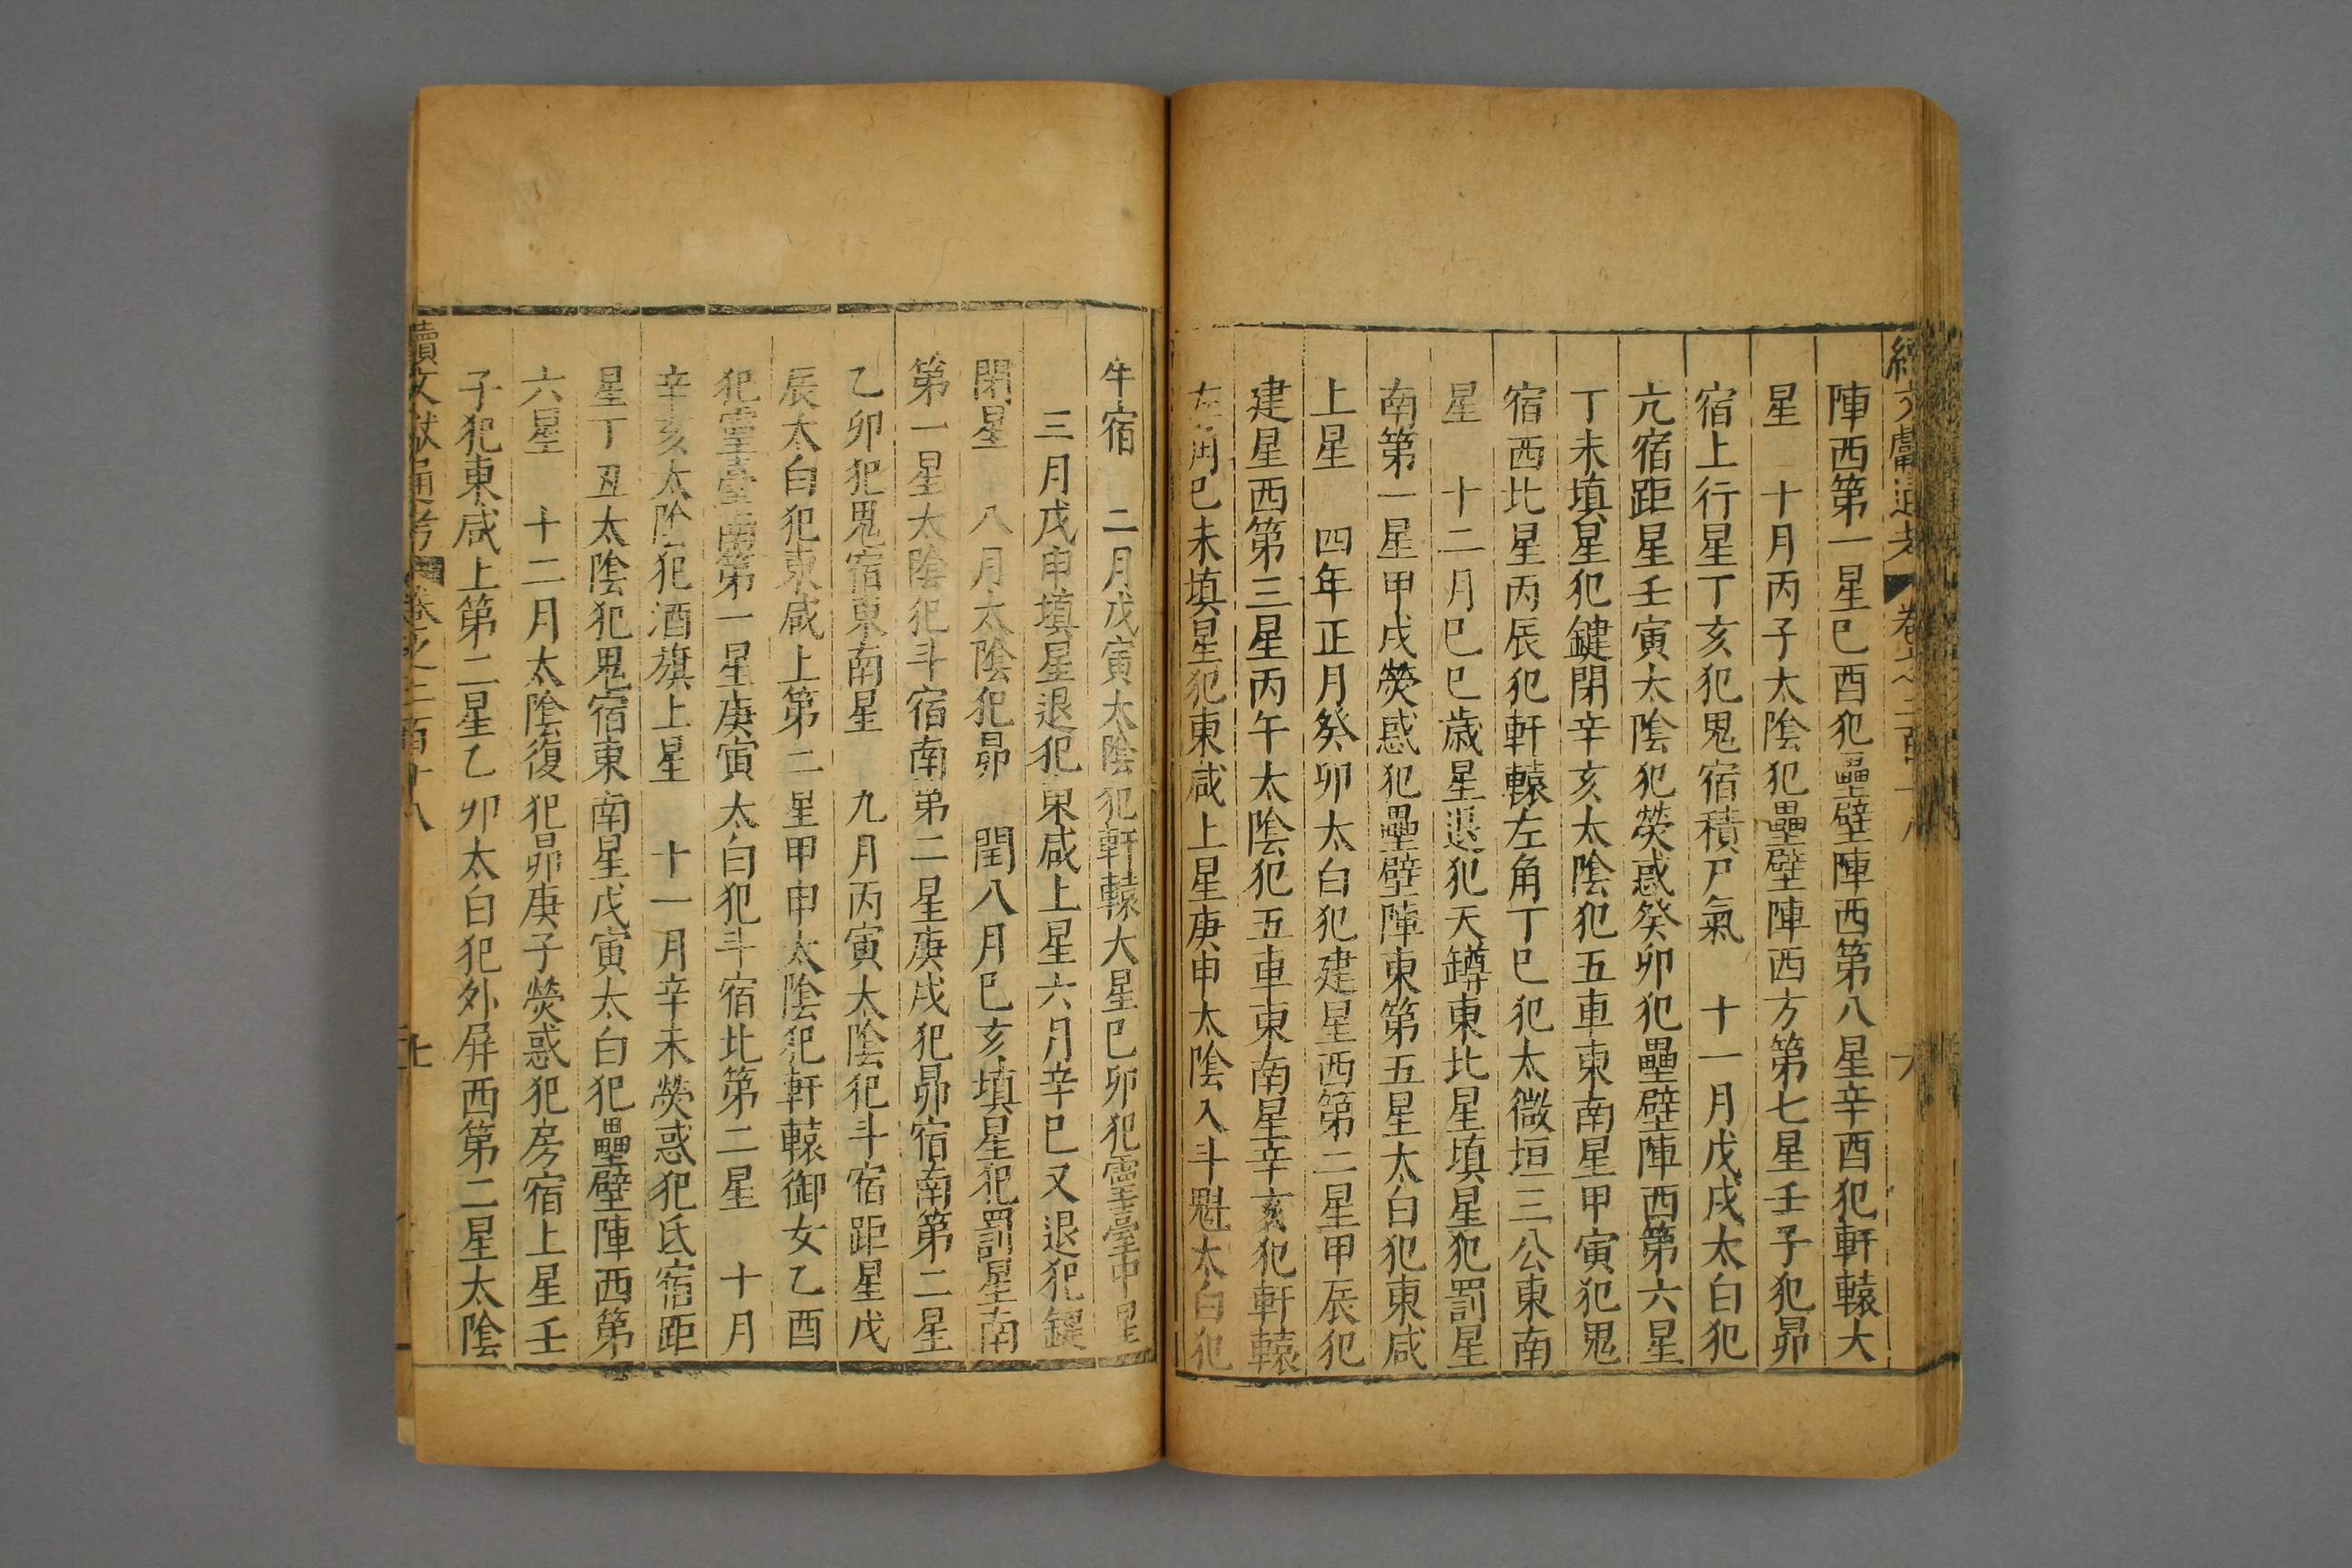 陣西第一星己酉犯壘壁陣西第八星辛酉犯軒轅大
星　十月丙子太陰犯壘壁陣西方第七星壬子犯昴
宿上行星丁亥犯鬼宿積尸氣　十一月戊戌太白犯
亢宿距星壬寅太陰犯熒惑癸卯犯壘壁陣西第六星
丁未填星犯鍵閉辛亥太陰犯五車東南星甲寅犯鬼
宿西北星丙辰犯軒轅左角丁巳犯太微垣三公東南
星　十二月己巳歲星退犯天罇東北星填星犯罰星
南第一星甲戌熒惑犯壘壁陣東第五星太白犯東咸
上星　四年正月癸卯太白犯建星西第二星甲辰犯
建星西第三星丙午太陰犯五車東南星辛亥犯軒轅
左角己未填星犯東咸上星庚申太陰入斗魁太白犯
牛宿　二月戊寅太陰犯軒轅大星己卯犯靈臺中星
三月戊申填星退犯東咸上星六月辛巳又退犯鍵
閉星　八月太陰犯昴　閏八月己亥填星犯罰星南
第一星太陰犯斗宿南第二星庚戌犯昴宿南第二星
乙卯犯鬼宿東南星　九月丙寅太陰犯斗宿距星戊
辰太白犯東咸上第二星甲申太陰犯軒轅御女乙酉
犯靈臺南第一星庚寅太白犯斗宿北第二星　十月
辛亥太陰犯酒旗上星　十一月辛未熒惑犯氐宿距
星丁丑太陰犯鬼宿東南星戊寅太白犯壘壁陣西第
六星　十二月太陰復犯昴庚子熒惑犯房宿上星壬
子犯東咸上第二星乙卯太白犯外屏西第二星太陰
續文獻通考　卷之二百十八